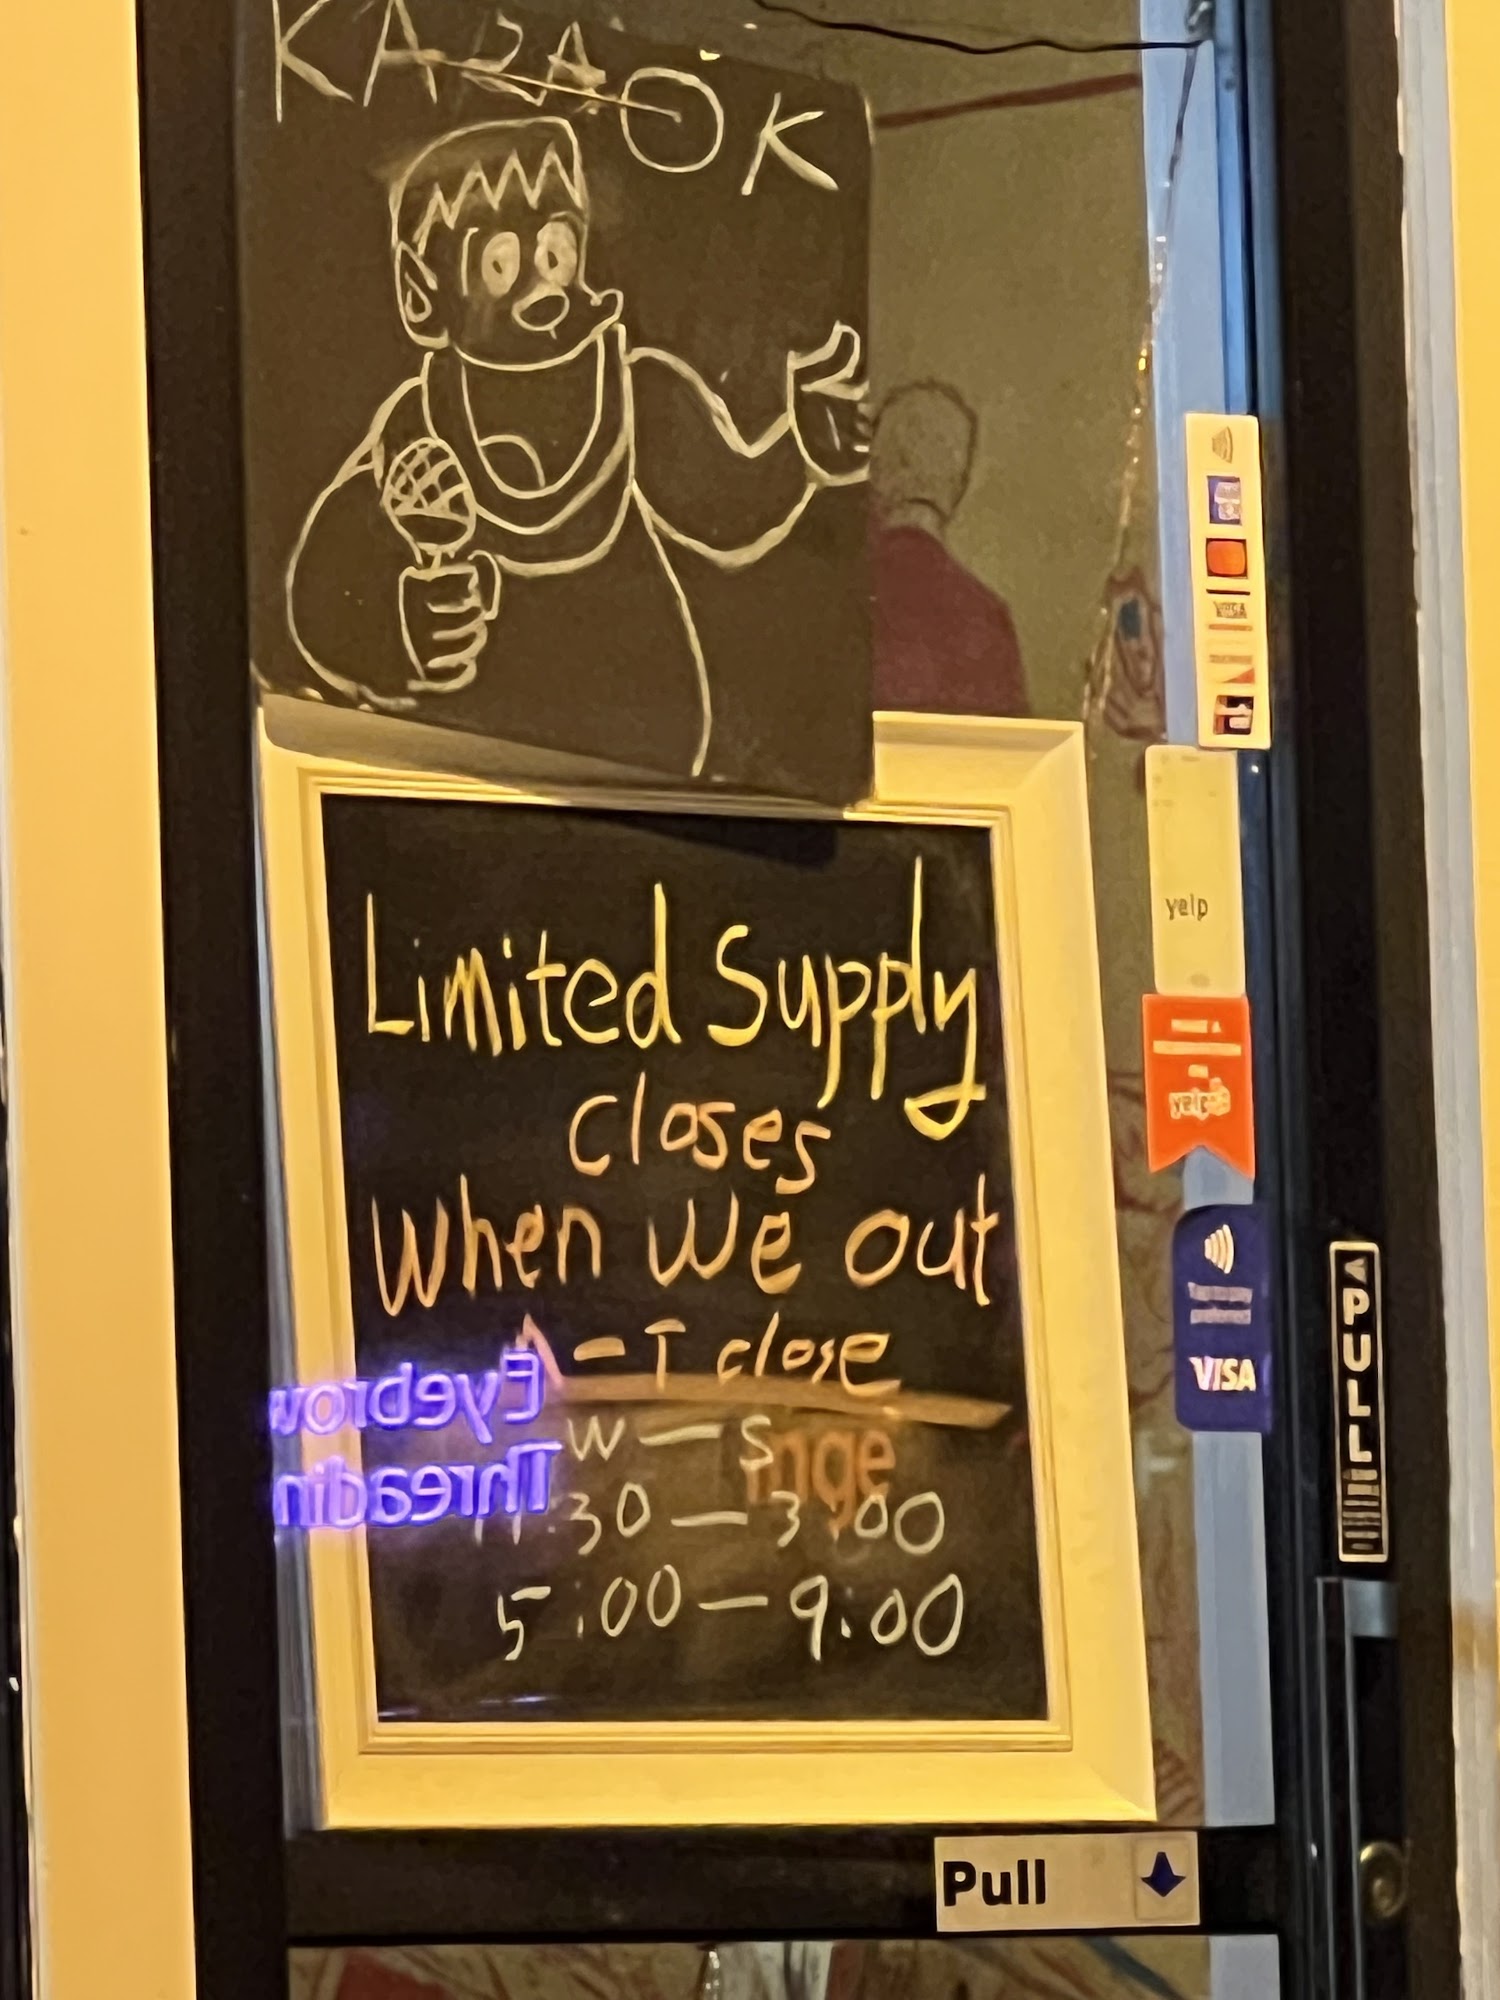 KARAOK
Limited Supply
closes
When We out
-T close
W-S
11:30-3:00
5:00-9:00
Eyebrow
Threadin
nge
VISA
yelp
yelp
VISA
PULL
Pull